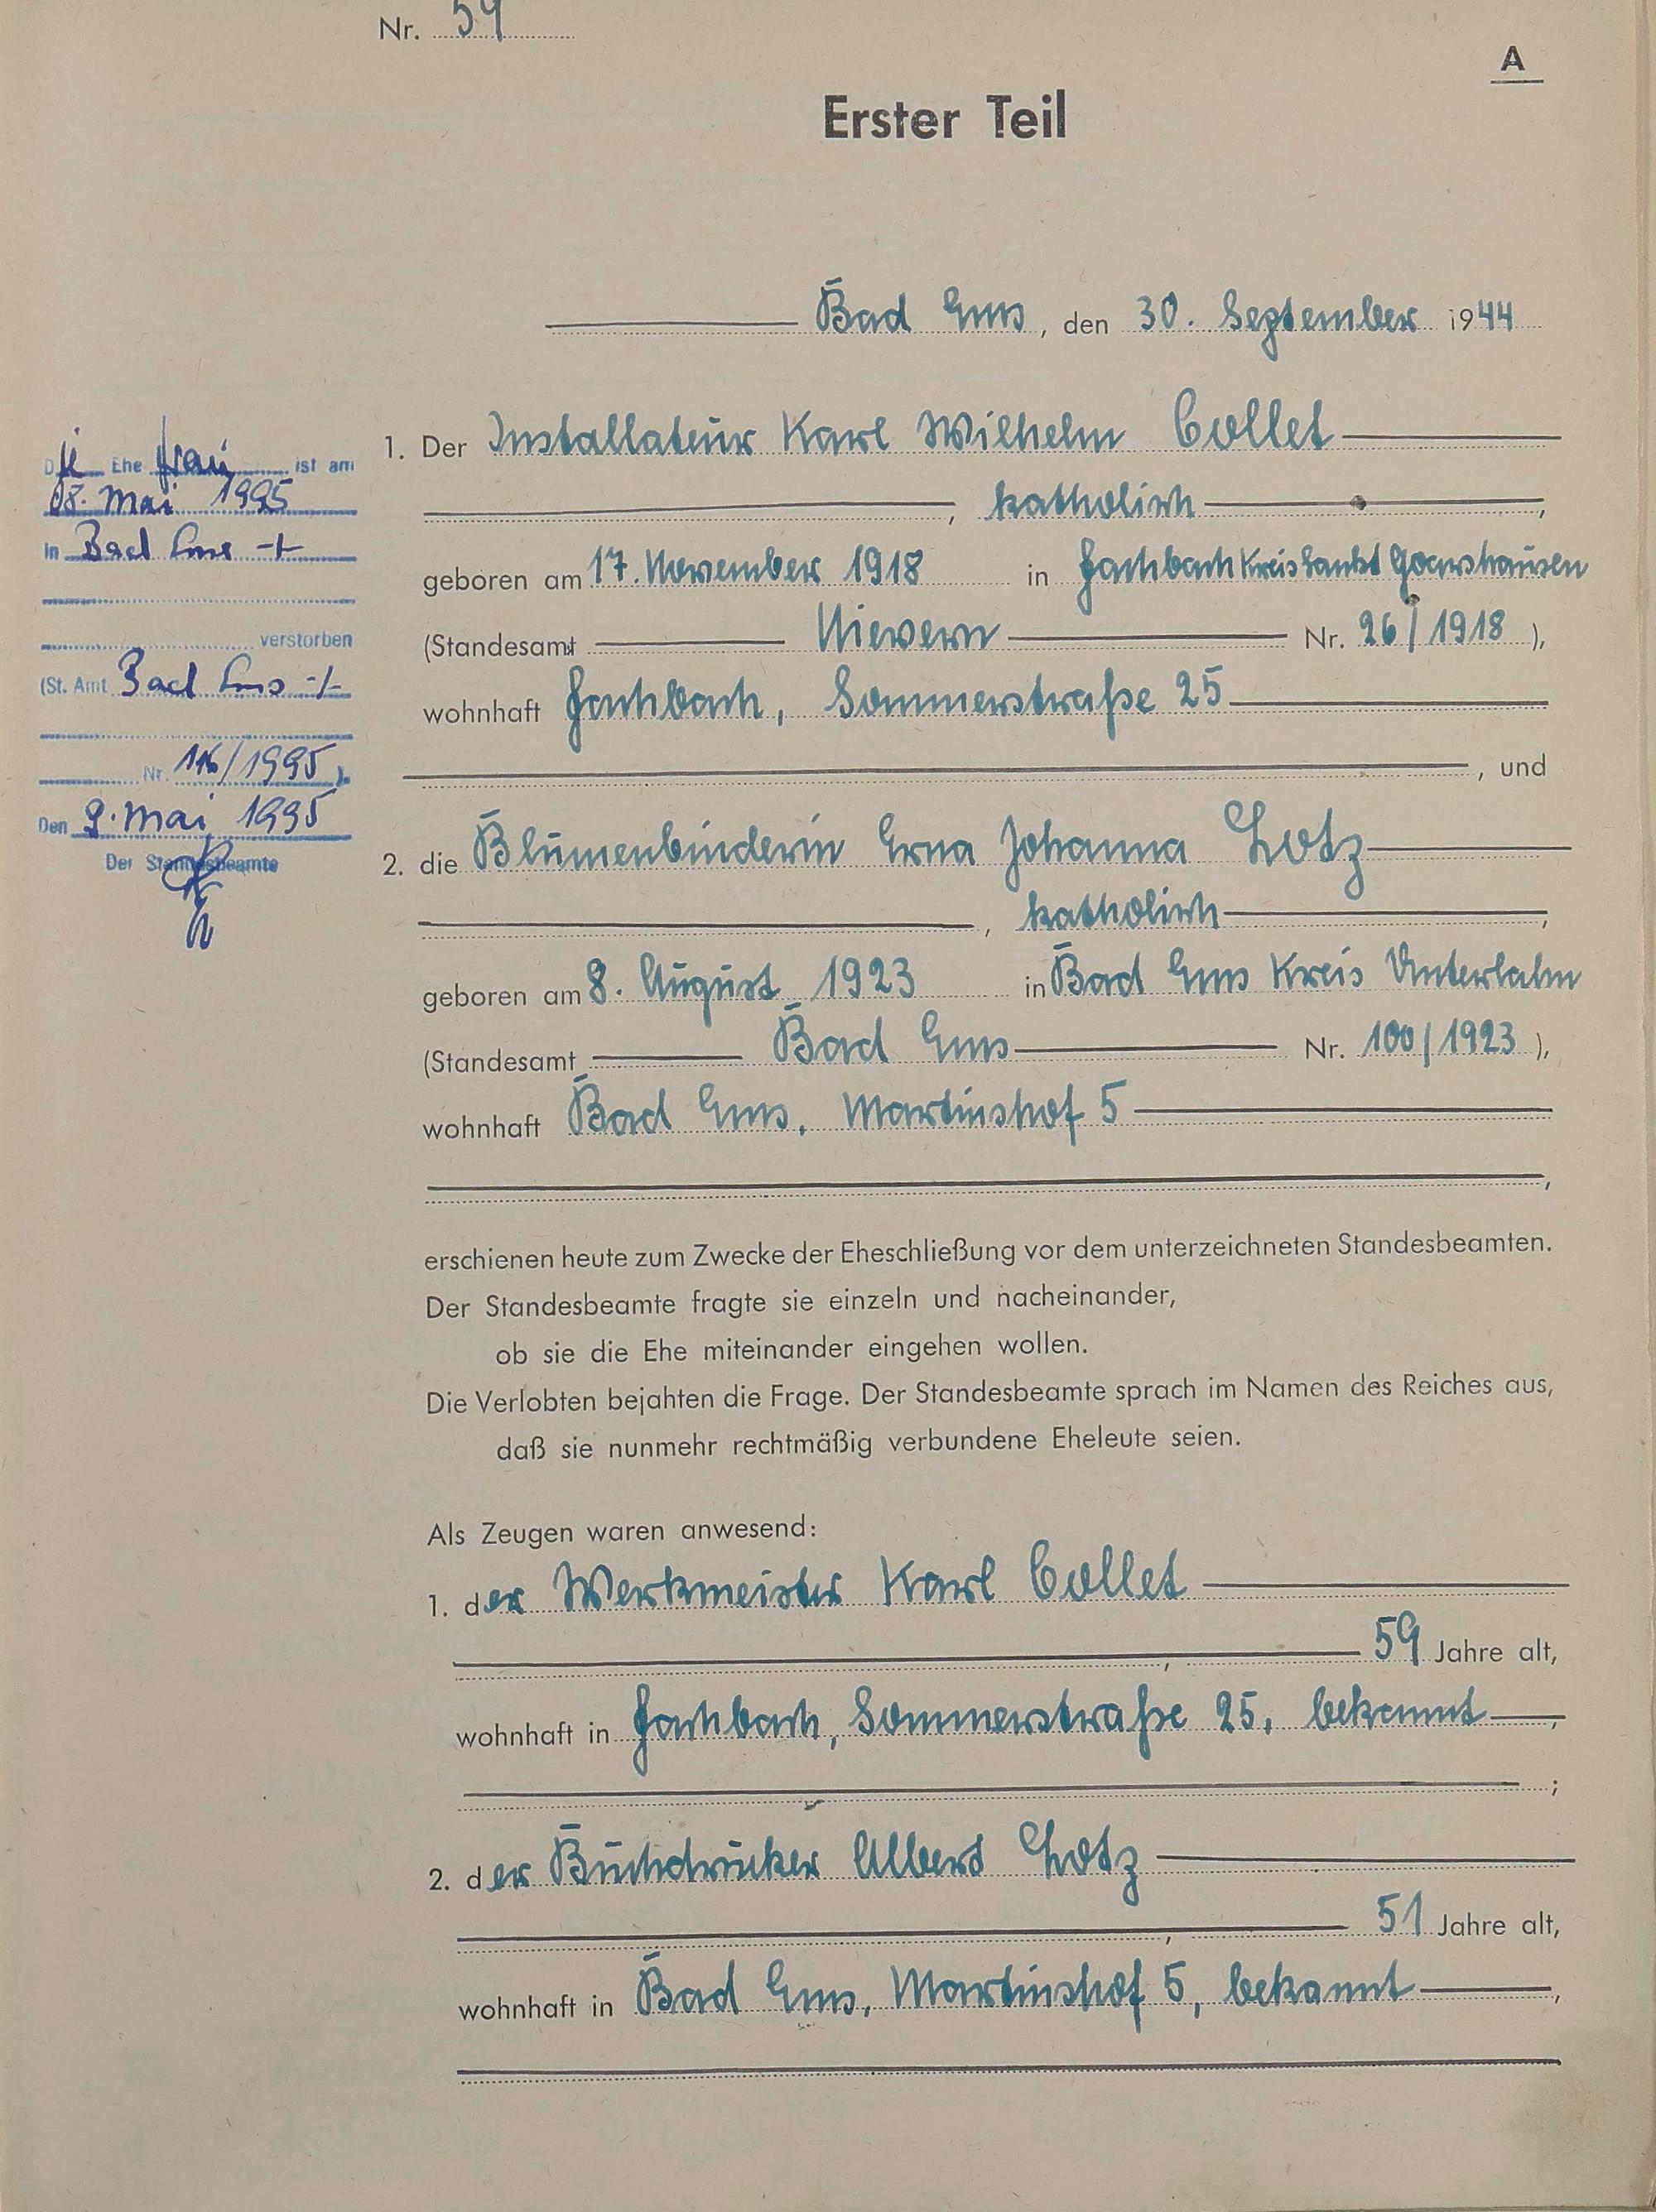 Nr. 59
A
Erster Teil
Bad Ems, den 30. September 1944
1. Der Installateur Karl Wilhelm Collet
, katholisch,
geboren am 17. November 1918 in Fachbach Kreis Sankt Goarshausen
(Standesamt Nievern Nr. 26/1918),
wohnhaft Fachbach, Sommerstraße 25
, und
2. die Blumenbinderin Erna Johanna Lotz
, katholisch,
geboren am 8. August 1923 in Bad Ems Kreis Unterlahn
(Standesamt Bad Ems Nr. 100/1923),
wohnhaft Bad Ems, Martinshof 5
,
erschienen heute zum Zwecke der Eheschließung vor dem unterzeichneten Standesbeamten.
Der Standesbeamte fragte sie einzeln und nacheinander,
ob sie die Ehe miteinander eingehen wollen.
Die Verlobten bejahten die Frage. Der Standesbeamte sprach im Namen des Reiches aus,
daß sie nunmehr rechtmäßig verbundene Eheleute seien.
Als Zeugen waren anwesend:
1. der Werkmeister Karl Collet
, 59 Jahre alt,
wohnhaft in Fachbach, Sommerstraße 25, bekannt,
;
2. der Buchdrucker Albert Lotz
, 51 Jahre alt,
wohnhaft in Bad Ems, Martinshof 5, bekannt,
Die Ehefrau ist am
08. Mai 1995
in Bad Ems -/-
verstorben
(St. Amt Bad Ems -/-
Nr. 116/1995).
Den 9. Mai 1995
Der Standesbeamte